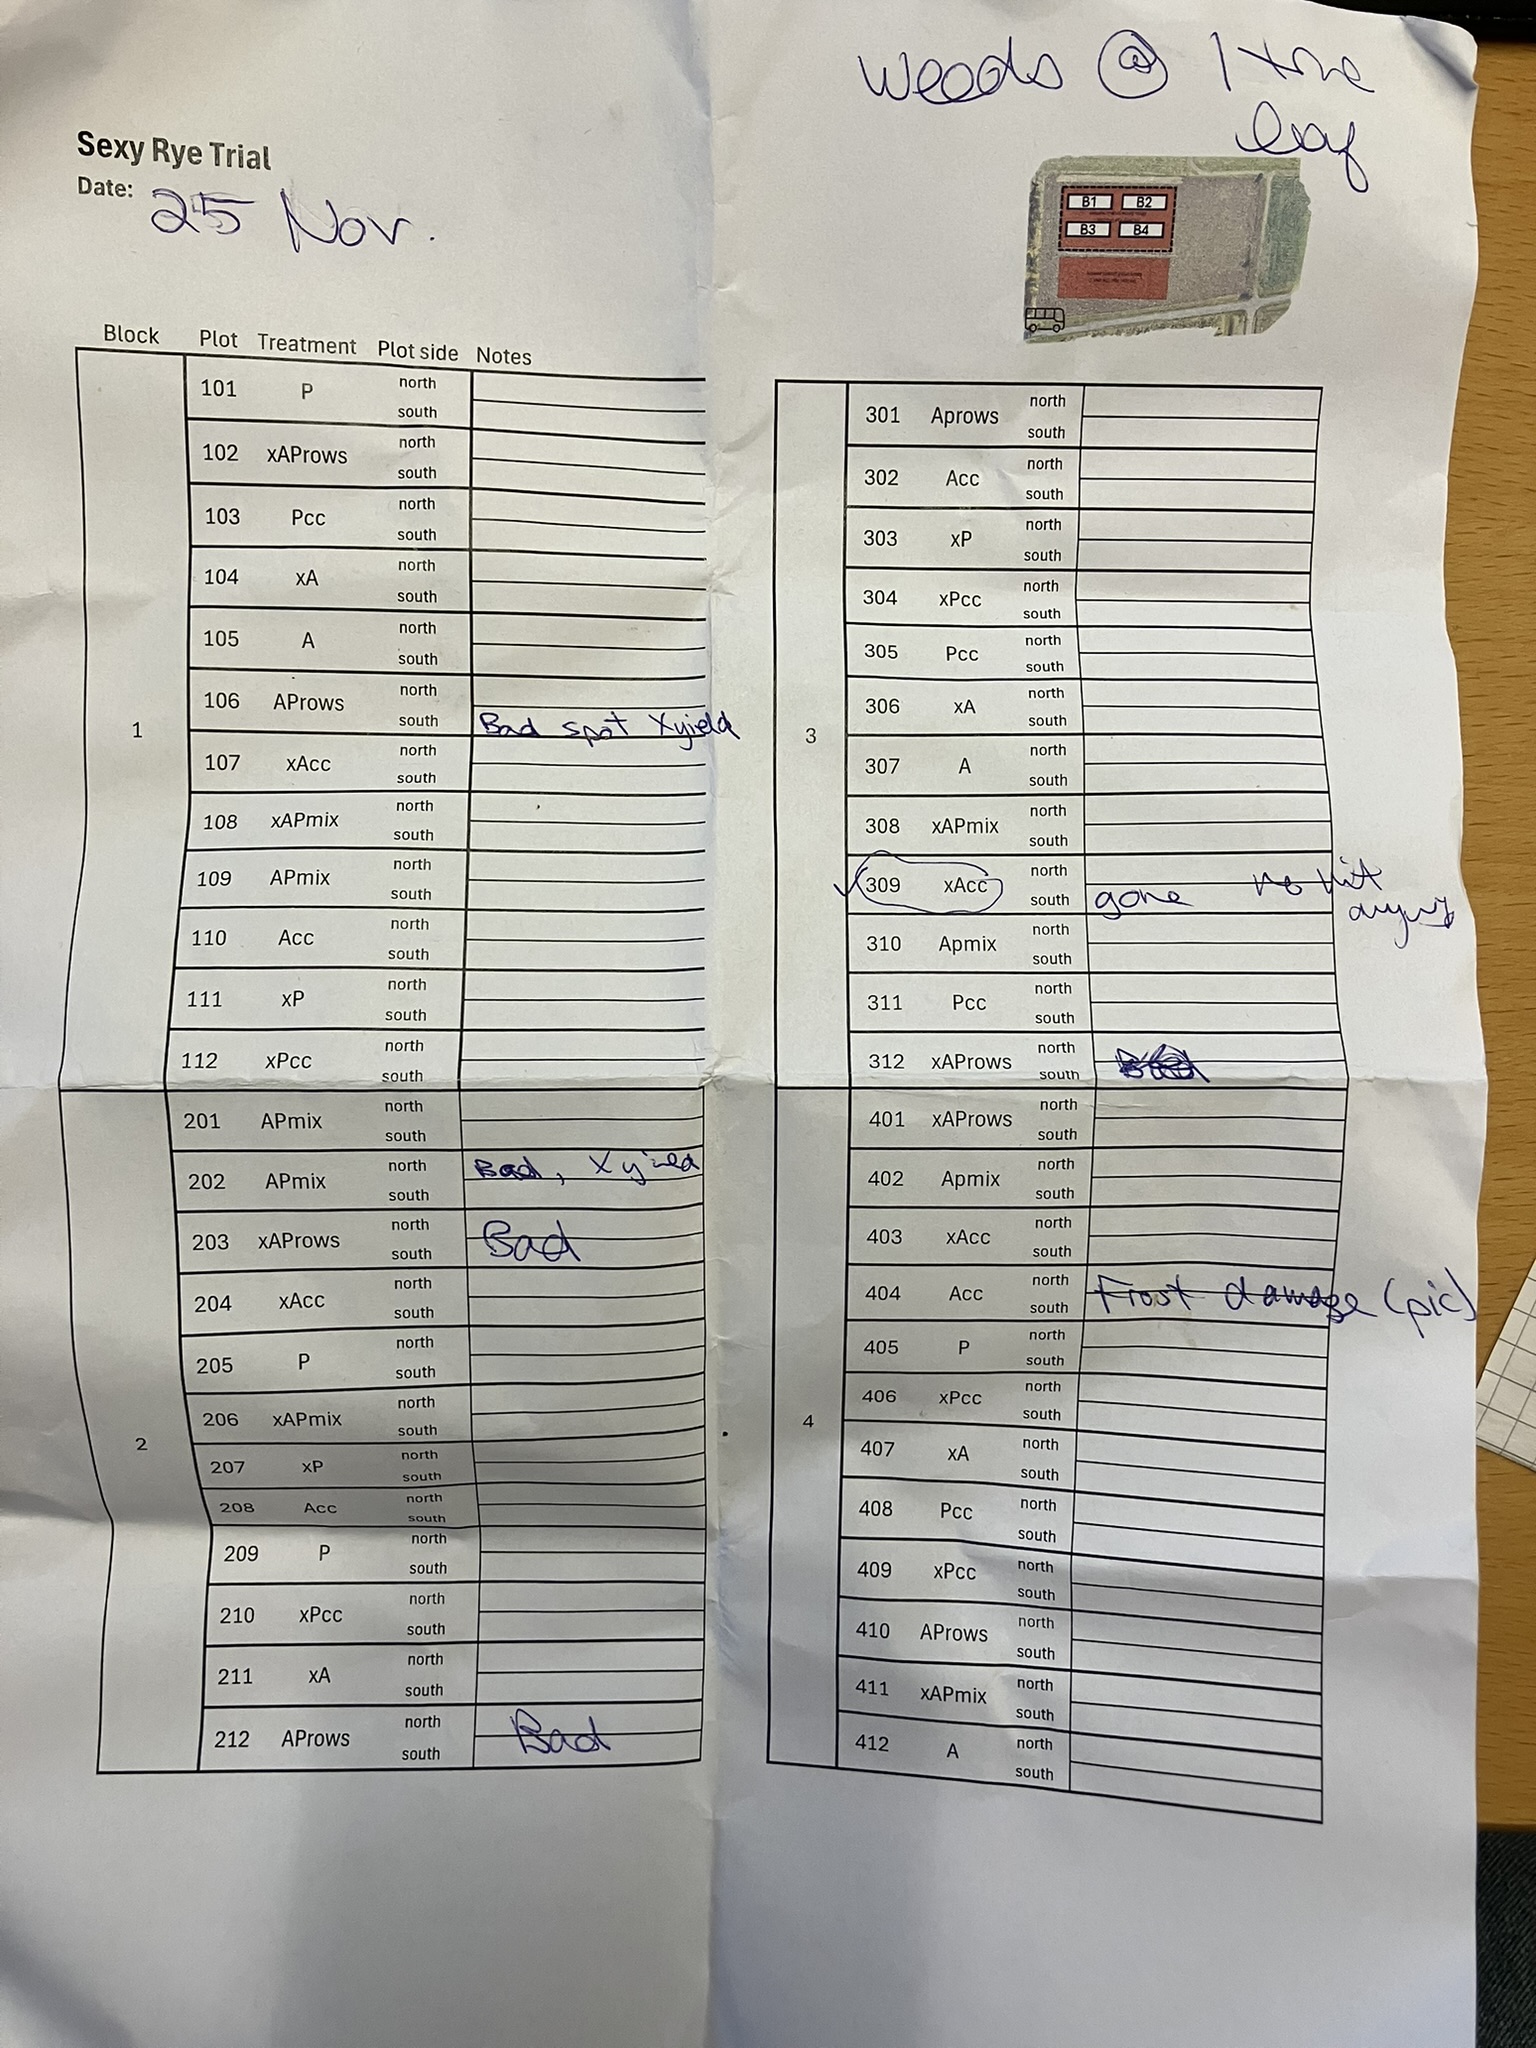 weeds @ 1 true
leaf
Sexy Rye Trial
Date: 25 Nov.
B1 B2
B3 B4
Block Plot Treatment Plot side Notes
1
101 P north
south
102 xAProws north
south
103 Pcc north
south
104 xA north
south
105 A north
south
106 AProws north
south Bad spot Xyield
107 xAcc north
south
108 xAPmix north
south
109 APmix north
south
110 Acc north
south
111 xP north
south
112 xPcc north
south
2
201 APmix north
south
202 APmix north Bad, Xyield
south
203 xAProws north
south Bad
204 xAcc north
south
205 P north
south
206 xAPmix north
south
207 xP north
south
208 Acc north
south
209 P north
south
210 xPcc north
south
211 xA north
south
212 AProws north
south Bad
3
301 Aprows north
south
302 Acc north
south
303 xP north
south
304 xPcc north
south
305 Pcc north
south
306 xA north
south
307 A north
south
308 xAPmix north
south
309 xAcc north
south gone no
310 Apmix north
south
311 Pcc north
south
312 xAProws north
south
4
401 xAProws north
south
402 Apmix north
south
403 xAcc north
south
404 Acc north
south Frost damage (pic)
405 P north
south
406 xPcc north
south
407 xA north
south
408 Pcc north
south
409 xPcc north
south
410 AProws north
south
411 xAPmix north
south
412 A north
south